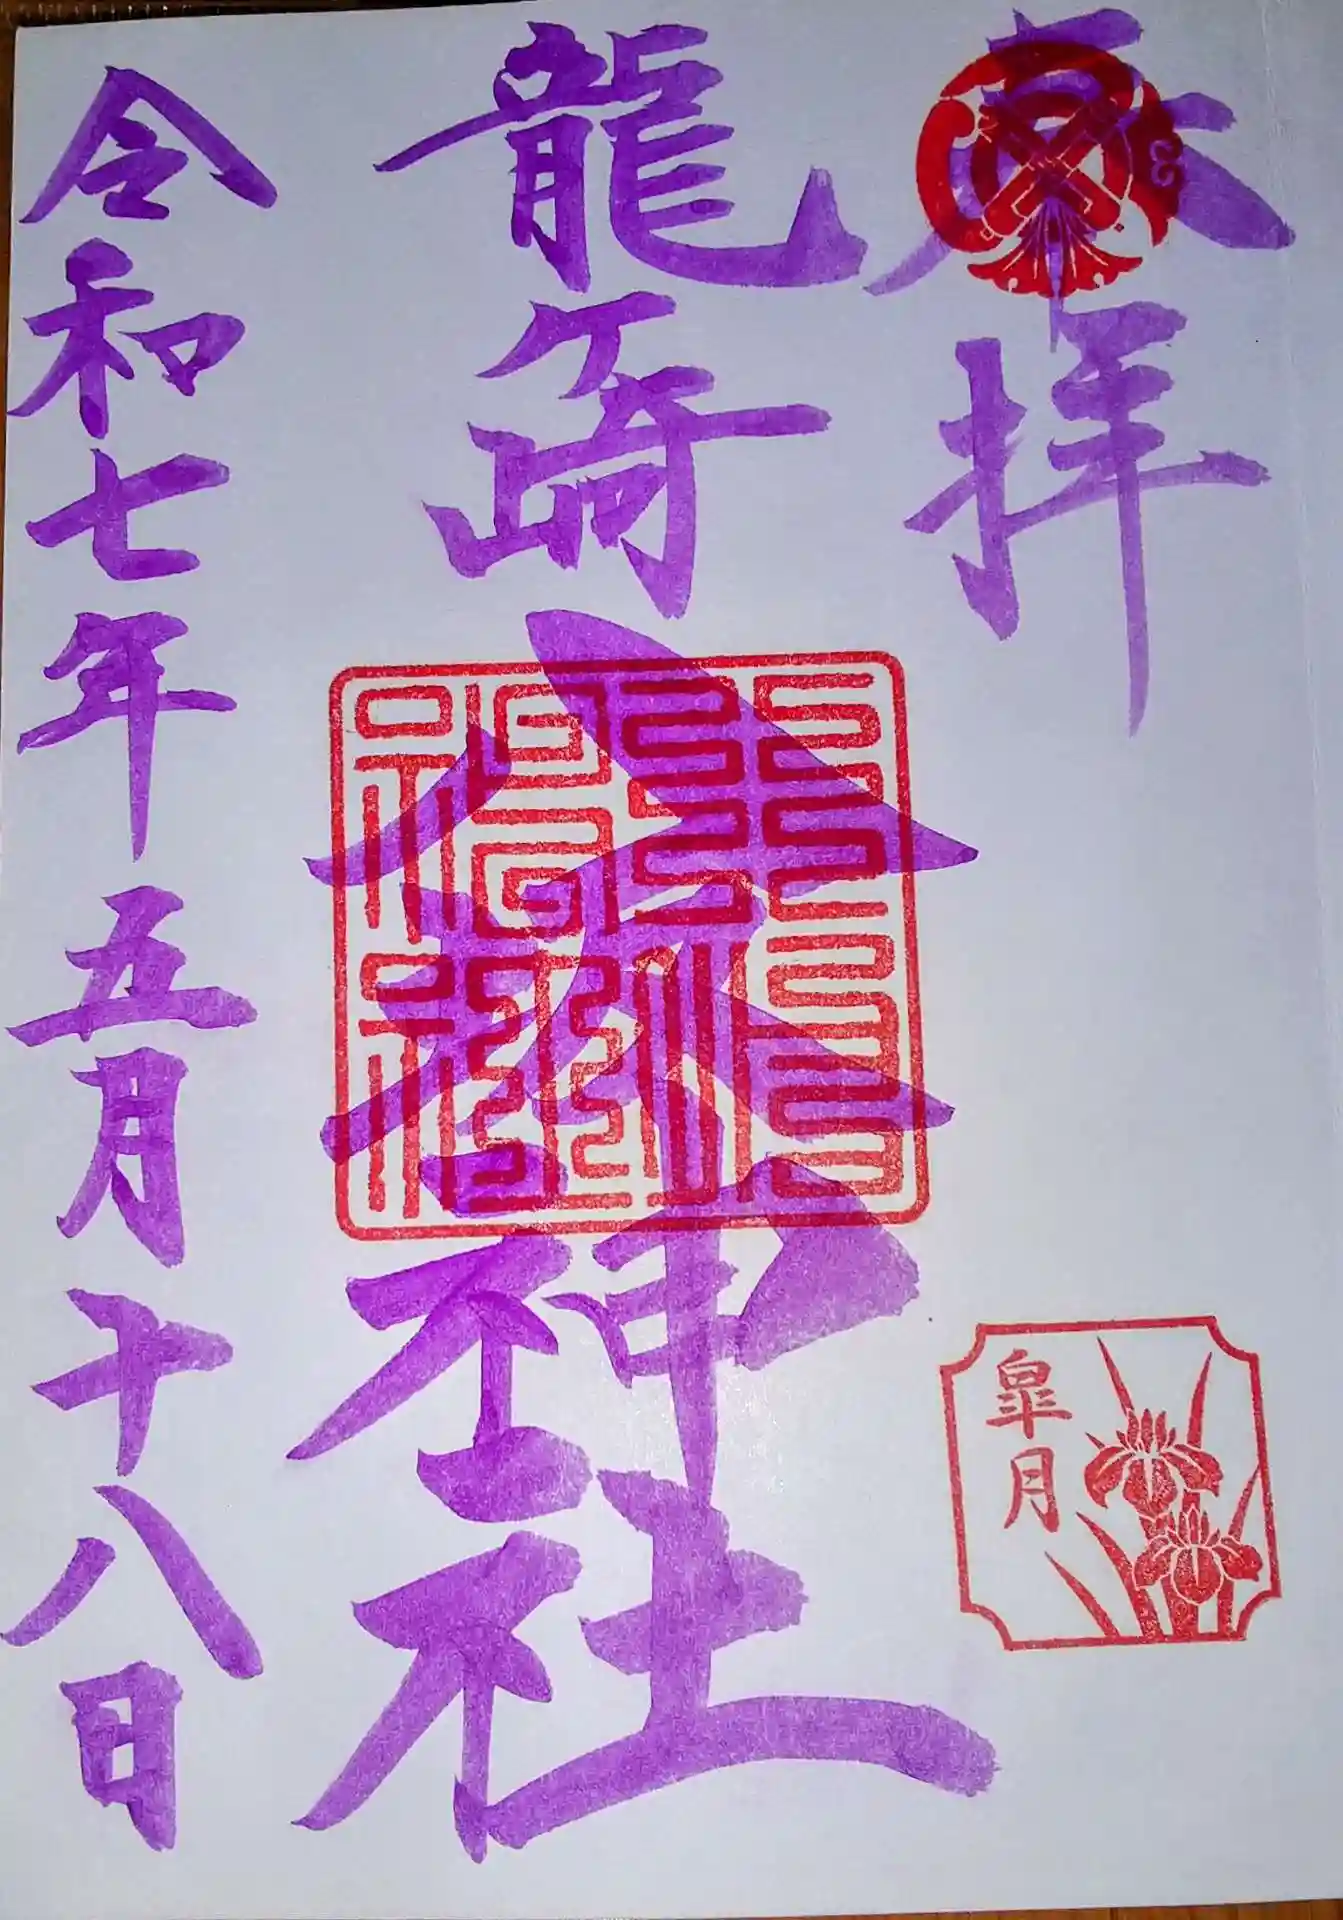 奉拝
龍ケ崎八坂神社
令和七年五月十八日
皐月